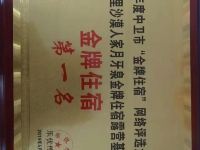 年度中卫市“金牌住宿”网络评选
里沙漠人家月牙泉金牌住宿露营基
金牌住宿
第一名